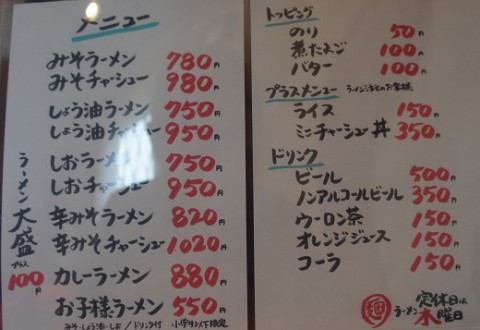 メニュー
みそラーメン 780円
みそチャーシュー 980円
しょう油ラーメン 750円
しょう油チャーシュー 950円
しおラーメン 750円
しおチャーシュー 950円
辛みそラーメン 820円
辛みそチャーシュー 1020円
カレーラーメン 880円
お子様ラーメン 550円
みそ・しょう油・しお/ドリンク付 小学生以下限定
ラーメン大盛プラス100円
トッピング
のり 50円
煮たまご 100円
バター 100円
プラスメニュー
ライス 150円
ミニチャーシュー丼 350円
ドリンク
ビール 500円
ノンアルコールビール 350円
ウーロン茶 150円
オレンジジュース 150円
コーラ 150円
ラーメン 定休日は
木曜日